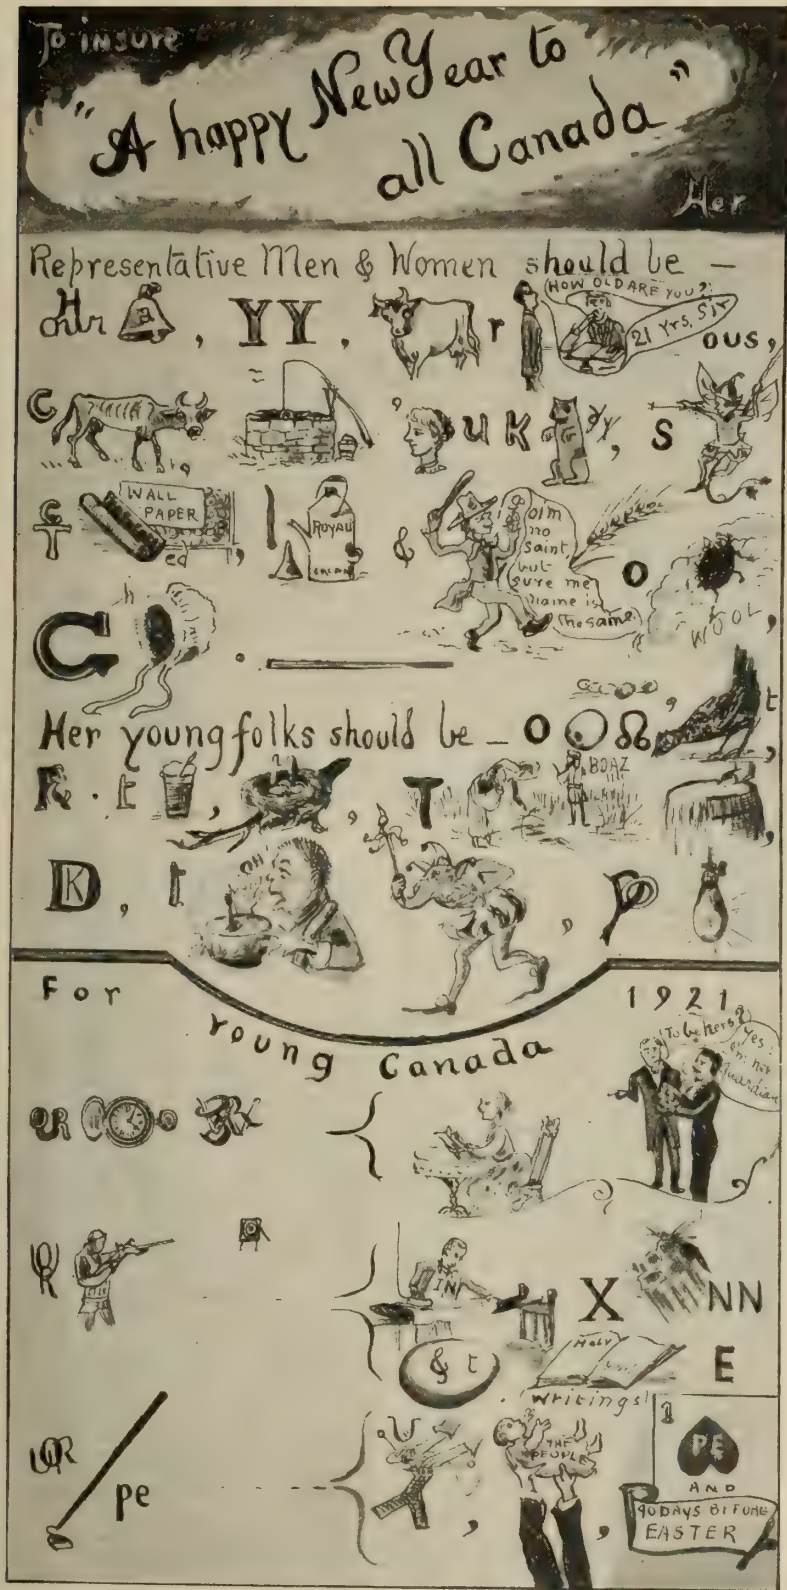 To insure
"A happy New Year to
all Canada"
Her
Representative Men & Women should be —
HOW OLD ARE YOU?
21 Yrs, Sir
B , YY , r ous,
C , U K , S
WALL
PAPER
ed , ROYAL & Oim
no
saint,
but
sure me
name is
the same. O
WOOL,
C h .
Her young folks should be — O , t,
R . t , , T BOAZ ,
D K , t OH , P
For 1921
Young Canada
To be hers?
Yes
guardian
UR
UR IN X NN
& t Holy E
writings!
UR pe THE
PEOPLE , , 1 PE
AND
40 DAYS BEFORE
EASTER